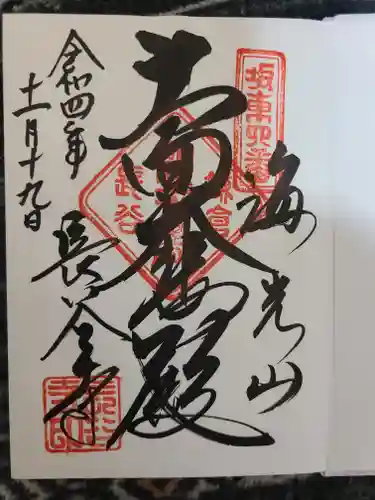 坂東四番
海光山
十一面大悲殿
令和四年
十一月十九日
長谷寺